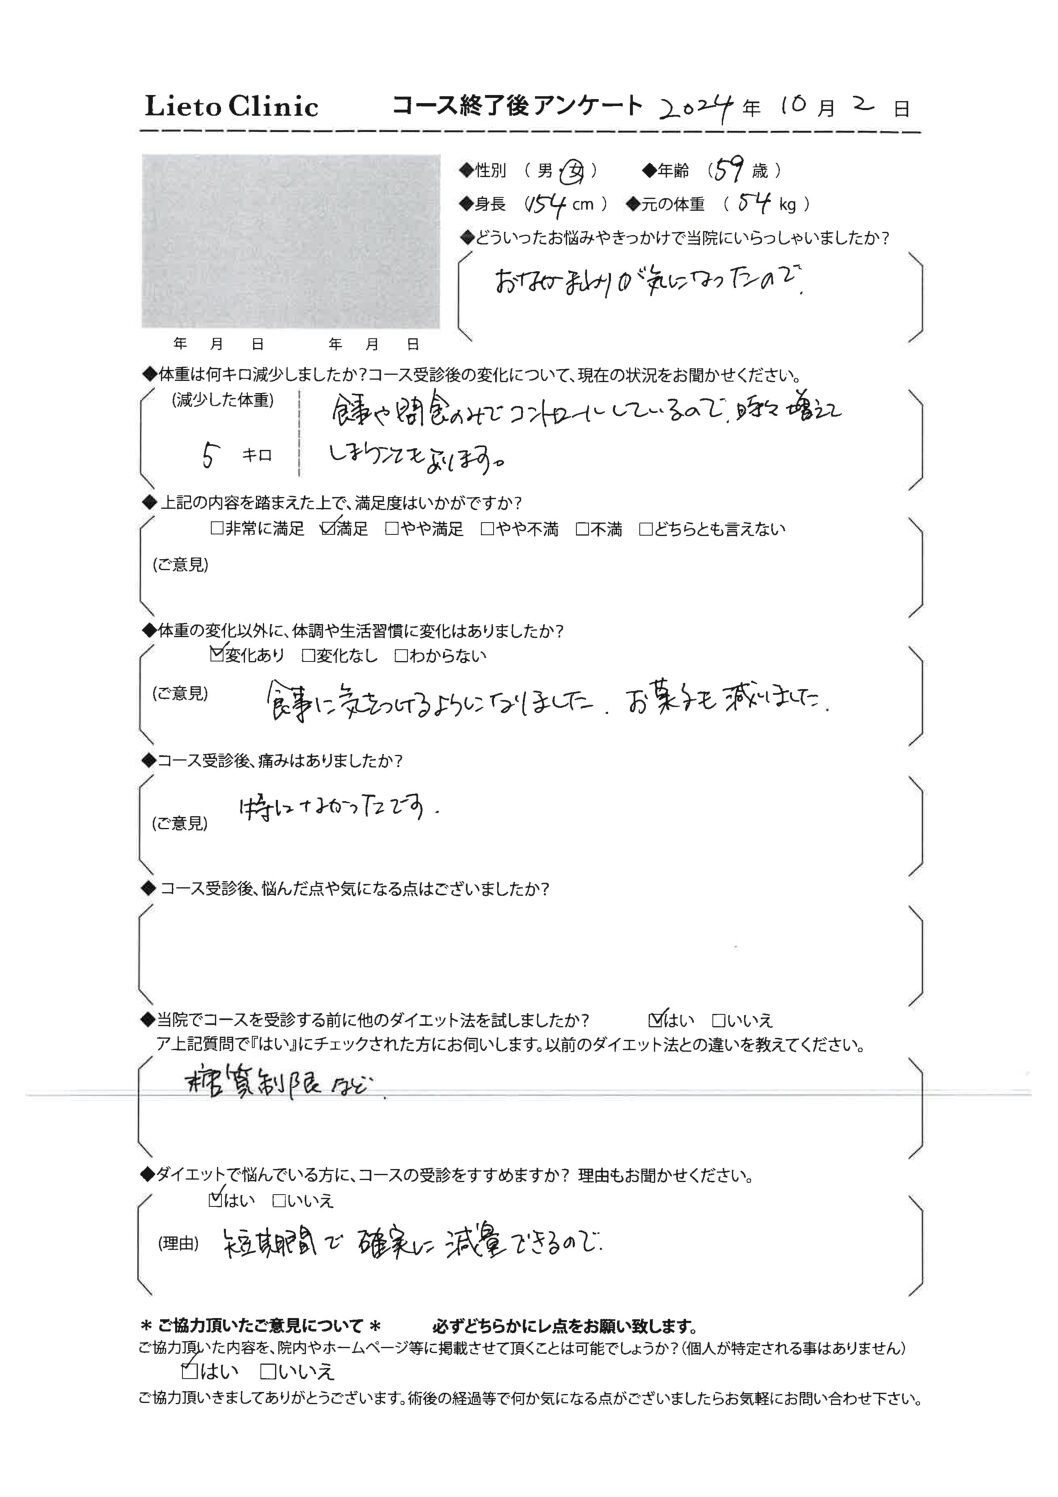 Lieto Clinic コース終了後アンケート 2024年 10月 2日
◆性別 (男・女) ◆年齢 (59歳)
◆身長 (154cm) ◆元の体重 (54kg)
◆どういったお悩みやきっかけで当院にいらっしゃいましたか?
おなかまわりが気になったので.
年 月 日 年 月 日
◆体重は何キロ減少しましたか?コース受診後の変化について、現在の状況をお聞かせください。
(減少した体重)
食事や間食のみでコントロールしているので、時々増えて
5 キロ
しまうこともあります。
◆上記の内容を踏まえた上で、満足度はいかがですか?
□非常に満足 ☑満足 □やや満足 □やや不満 □不満 □どちらとも言えない
(ご意見)
◆体重の変化以外に、体調や生活習慣に変化はありましたか?
☑変化あり □変化なし □わからない
(ご意見) 食事に気をつけるようになりました. お菓子も減りました.
◆コース受診後、痛みはありましたか?
(ご意見) 特になかったです.
◆コース受診後、悩んだ点や気になる点はございましたか?
◆当院でコースを受診する前に他のダイエット法を試しましたか? ☑はい □いいえ
ア上記質問で『はい』にチェックされた方にお伺いします。以前のダイエット法との違いを教えてください。
糖質制限など.
◆ダイエットで悩んでいる方に、コースの受診をすすめますか? 理由もお聞かせください。
☑はい □いいえ
(理由) 短期間で確実に減量できるので.
＊ご協力頂いたご意見について＊ 必ずどちらかにレ点をお願い致します。
ご協力頂いた内容を、院内やホームページ等に掲載させて頂くことは可能でしょうか?(個人が特定される事はありません)
☑はい □いいえ
ご協力頂いきましてありがとうございます。術後の経過等で何か気になる点がございましたらお気軽にお問い合わせ下さい。